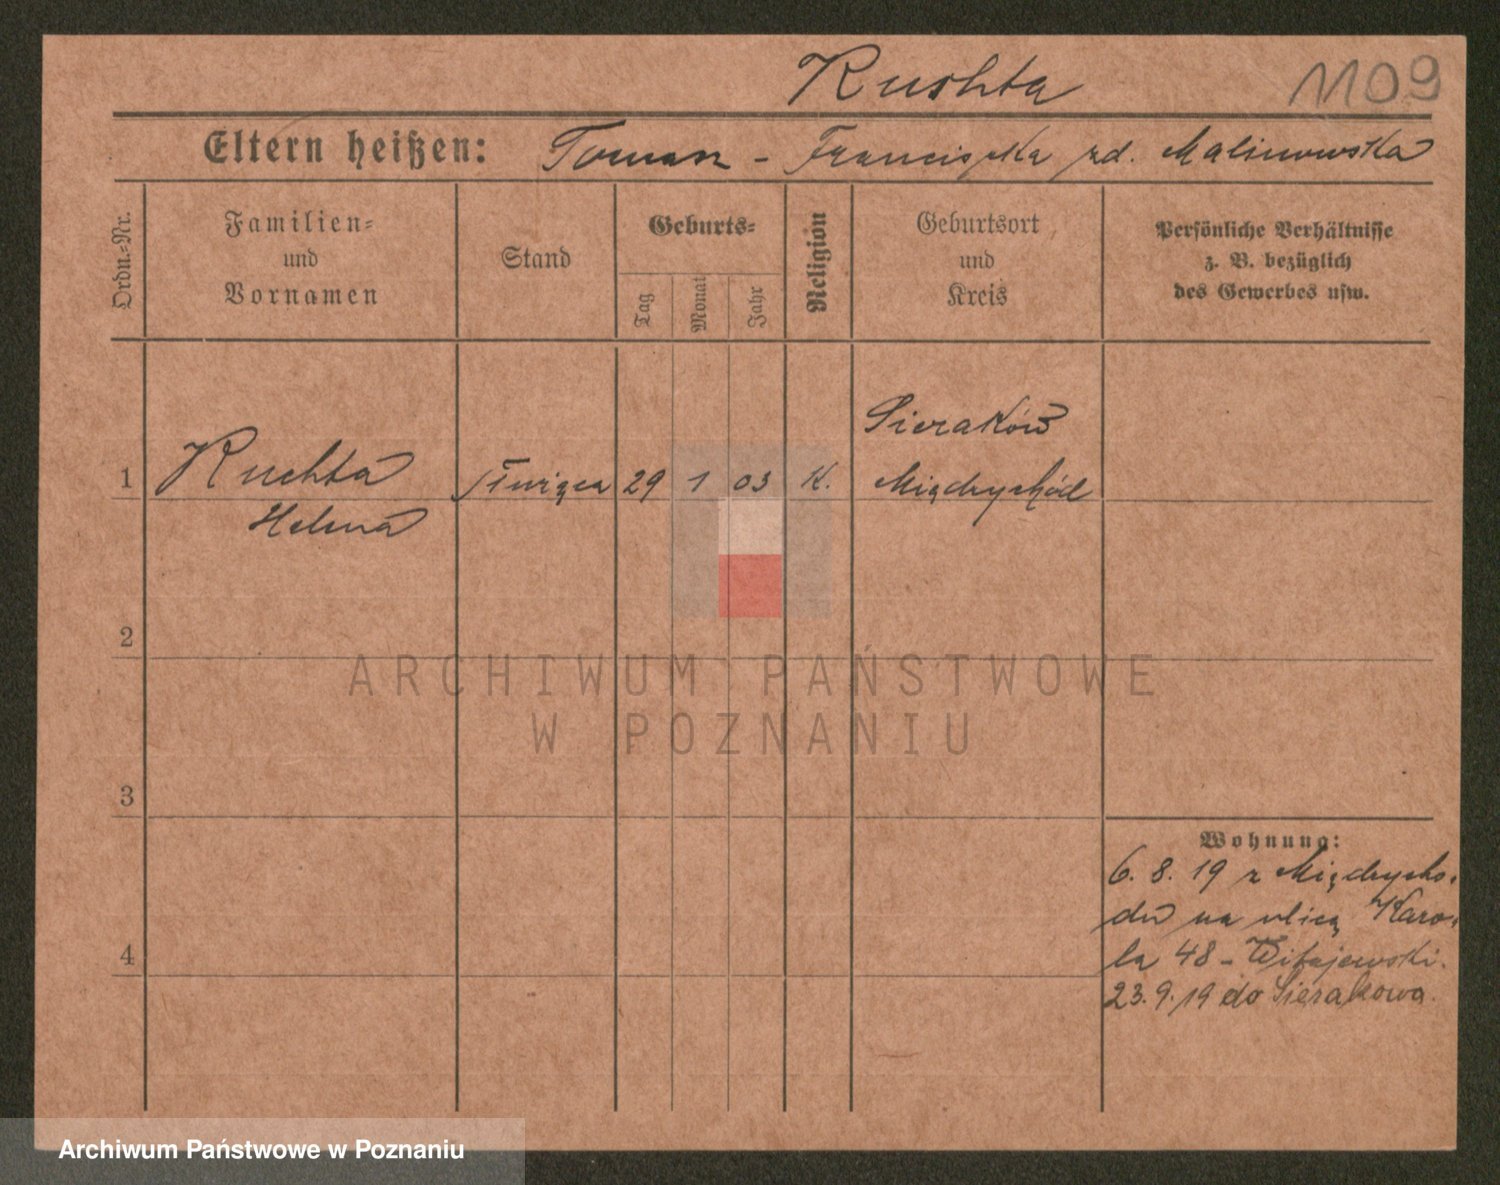 Kuchta 1109
Eltern heißen: Toman - Franciszka zd. Malinowska
Ordn.-Nr.
Familien-
und
Vornamen
Stand
Geburts-
Tag
Monat
Jahr
Religion
Geburtsort
und
Kreis
Persönliche Verhältnisse
z. B. bezüglich
des Gewerbes usw.
Sieraków
1 Kuchta służąca 29 1 03 K. Międzychód
Helena
2
ARCHIWUM PAŃSTWOWE
W POZNANIU
3
Wohnung:
6. 8. 19 z Międzycho-
du na ulicę Karo-
la 48 - Witajewski.
4
23. 9. 19 do Sierakowa.
Archiwum Państwowe w Poznaniu